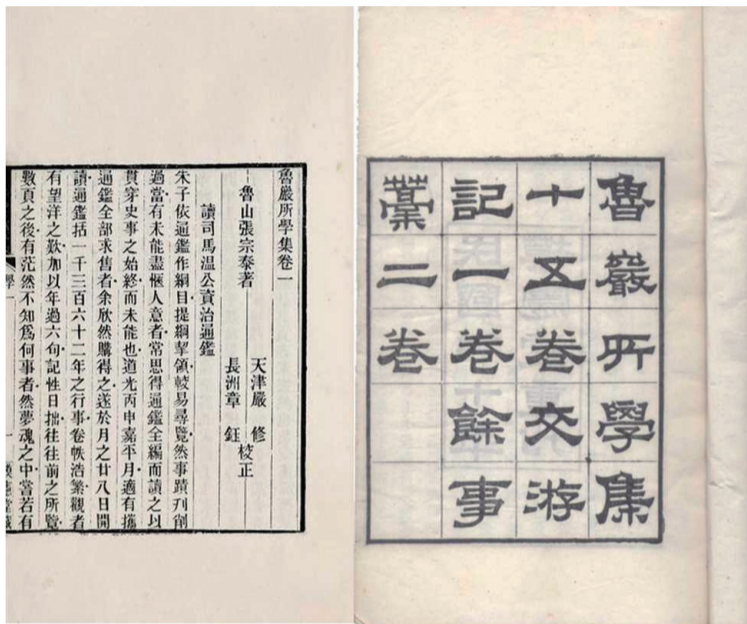 魯巖所學集
十五卷交游
記一卷餘事
藁二卷
魯巖所學集卷一
魯山張宗泰著
天津嚴　修
長洲章　鈺
校正
讀司馬溫公資治通鑑
朱子依通鑑作綱目提綱挈領較易尋覽然事蹟刊削
過當有未能盡愜人意者常思得通鑑全編而讀之以
貫穿史事之始終而未能也道光丙申嘉平月適有攜
通鑑全部求售者余欣然購得之遂於月之廿八日開
讀通鑑括一千三百六十二年之行事卷帙浩繁觀者
有望洋之歎加以年過六旬記性日拙往往前之所覽
數頁之後有茫然不知爲何事者然夢魂之中嘗若有
學一
一